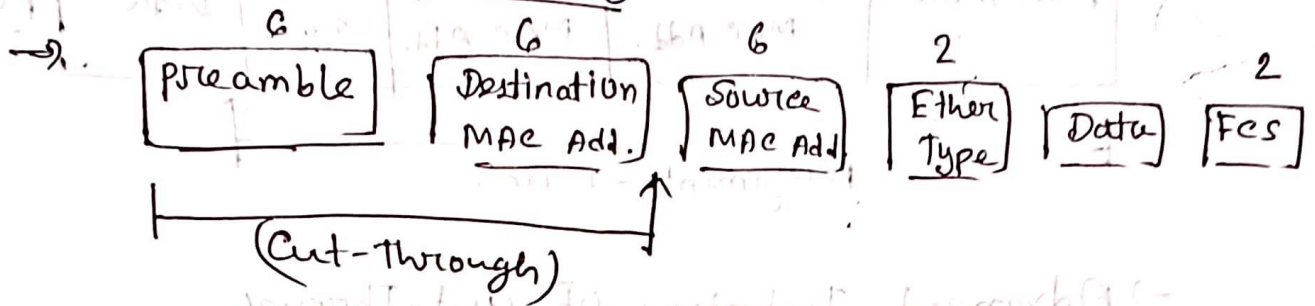 6 6 6 2 2
→ Preamble Destination MAC Add. Source MAC Add. Ether Type Data FCS
(Cut-Through)